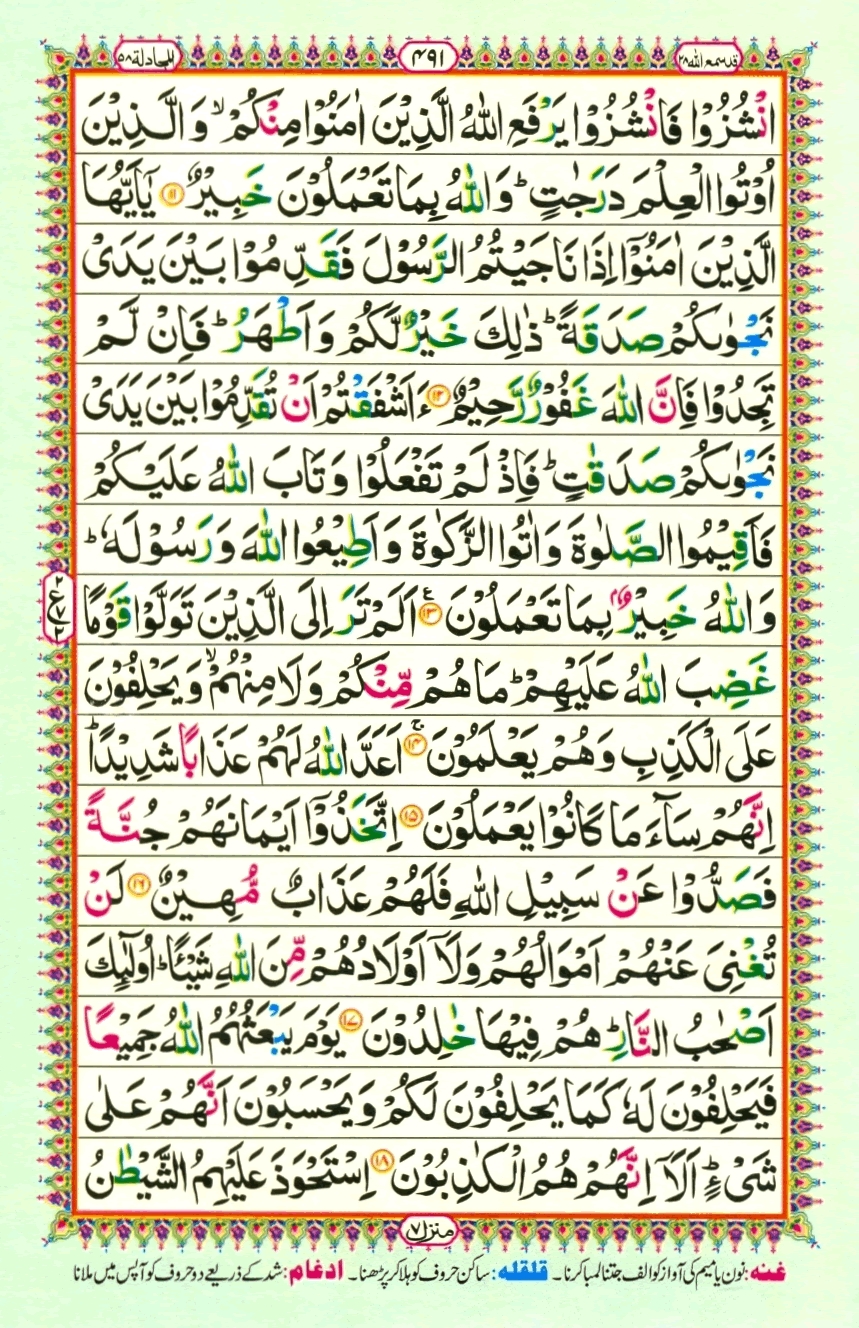 قد سمع الله ۲۸
۴۹۱
المجادلة ۵۸
انْشُزُوْا فَانْشُزُوْا یَرْفَعِ اللّٰهُ الَّذِیْنَ اٰمَنُوْا مِنْكُمْ ۙ وَ الَّذِیْنَ
اُوْتُوا الْعِلْمَ دَرَجٰتٍ ؕ وَ اللّٰهُ بِمَا تَعْمَلُوْنَ خَبِیْرٌ ۝۱۱ یٰۤاَیُّهَا
الَّذِیْنَ اٰمَنُوْۤا اِذَا نَاجَیْتُمُ الرَّسُوْلَ فَقَدِّمُوْا بَیْنَ یَدَیْ
نَجْوٰىكُمْ صَدَقَةً ؕ ذٰلِكَ خَیْرٌ لَّكُمْ وَ اَطْهَرُ ؕ فَاِنْ لَّمْ
تَجِدُوْا فَاِنَّ اللّٰهَ غَفُوْرٌ رَّحِیْمٌ ۝۱۲ ءَاَشْفَقْتُمْ اَنْ تُقَدِّمُوْا بَیْنَ یَدَیْ
نَجْوٰىكُمْ صَدَقٰتٍ ؕ فَاِذْ لَمْ تَفْعَلُوْا وَ تَابَ اللّٰهُ عَلَیْكُمْ
فَاَقِیْمُوا الصَّلٰوةَ وَ اٰتُوا الزَّكٰوةَ وَ اَطِیْعُوا اللّٰهَ وَ رَسُوْلَهٗ ؕ
وَ اللّٰهُ خَبِیْرٌۢ بِمَا تَعْمَلُوْنَ ۝۱۳ۧ اَلَمْ تَرَ اِلَى الَّذِیْنَ تَوَلَّوْا قَوْمًا
۲ ع ۷ ۲
غَضِبَ اللّٰهُ عَلَیْهِمْ ؕ مَا هُمْ مِّنْكُمْ وَ لَا مِنْهُمْ ۙ وَ یَحْلِفُوْنَ
عَلَى الْكَذِبِ وَ هُمْ یَعْلَمُوْنَ ۝۱۴ۚ اَعَدَّ اللّٰهُ لَهُمْ عَذَابًا شَدِیْدًا ؕ
اِنَّهُمْ سَآءَ مَا كَانُوْا یَعْمَلُوْنَ ۝۱۵ اِتَّخَذُوْۤا اَیْمَانَهُمْ جُنَّةً
فَصَدُّوْا عَنْ سَبِیْلِ اللّٰهِ فَلَهُمْ عَذَابٌ مُّهِیْنٌ ۝۱۶ لَنْ
تُغْنِیَ عَنْهُمْ اَمْوَالُهُمْ وَ لَاۤ اَوْلَادُهُمْ مِّنَ اللّٰهِ شَیْـًٔا ؕ اُولٰٓىِٕكَ
اَصْحٰبُ النَّارِ ؕ هُمْ فِیْهَا خٰلِدُوْنَ ۝۱۷ یَوْمَ یَبْعَثُهُمُ اللّٰهُ جَمِیْعًا
فَیَحْلِفُوْنَ لَهٗ كَمَا یَحْلِفُوْنَ لَكُمْ وَ یَحْسَبُوْنَ اَنَّهُمْ عَلٰى
شَیْءٍ ؕ اَلَاۤ اِنَّهُمْ هُمُ الْكٰذِبُوْنَ ۝۱۸ اِسْتَحْوَذَ عَلَیْهِمُ الشَّیْطٰنُ
منزل ۷
غنه: نون یا میم کی آواز کو الف جتنا لمبا کرنا۔ قلقله: ساکن حروف کو ہلا کر پڑھنا۔ ادغام: شد کے ذریعے دو حروف کو آپس میں ملانا